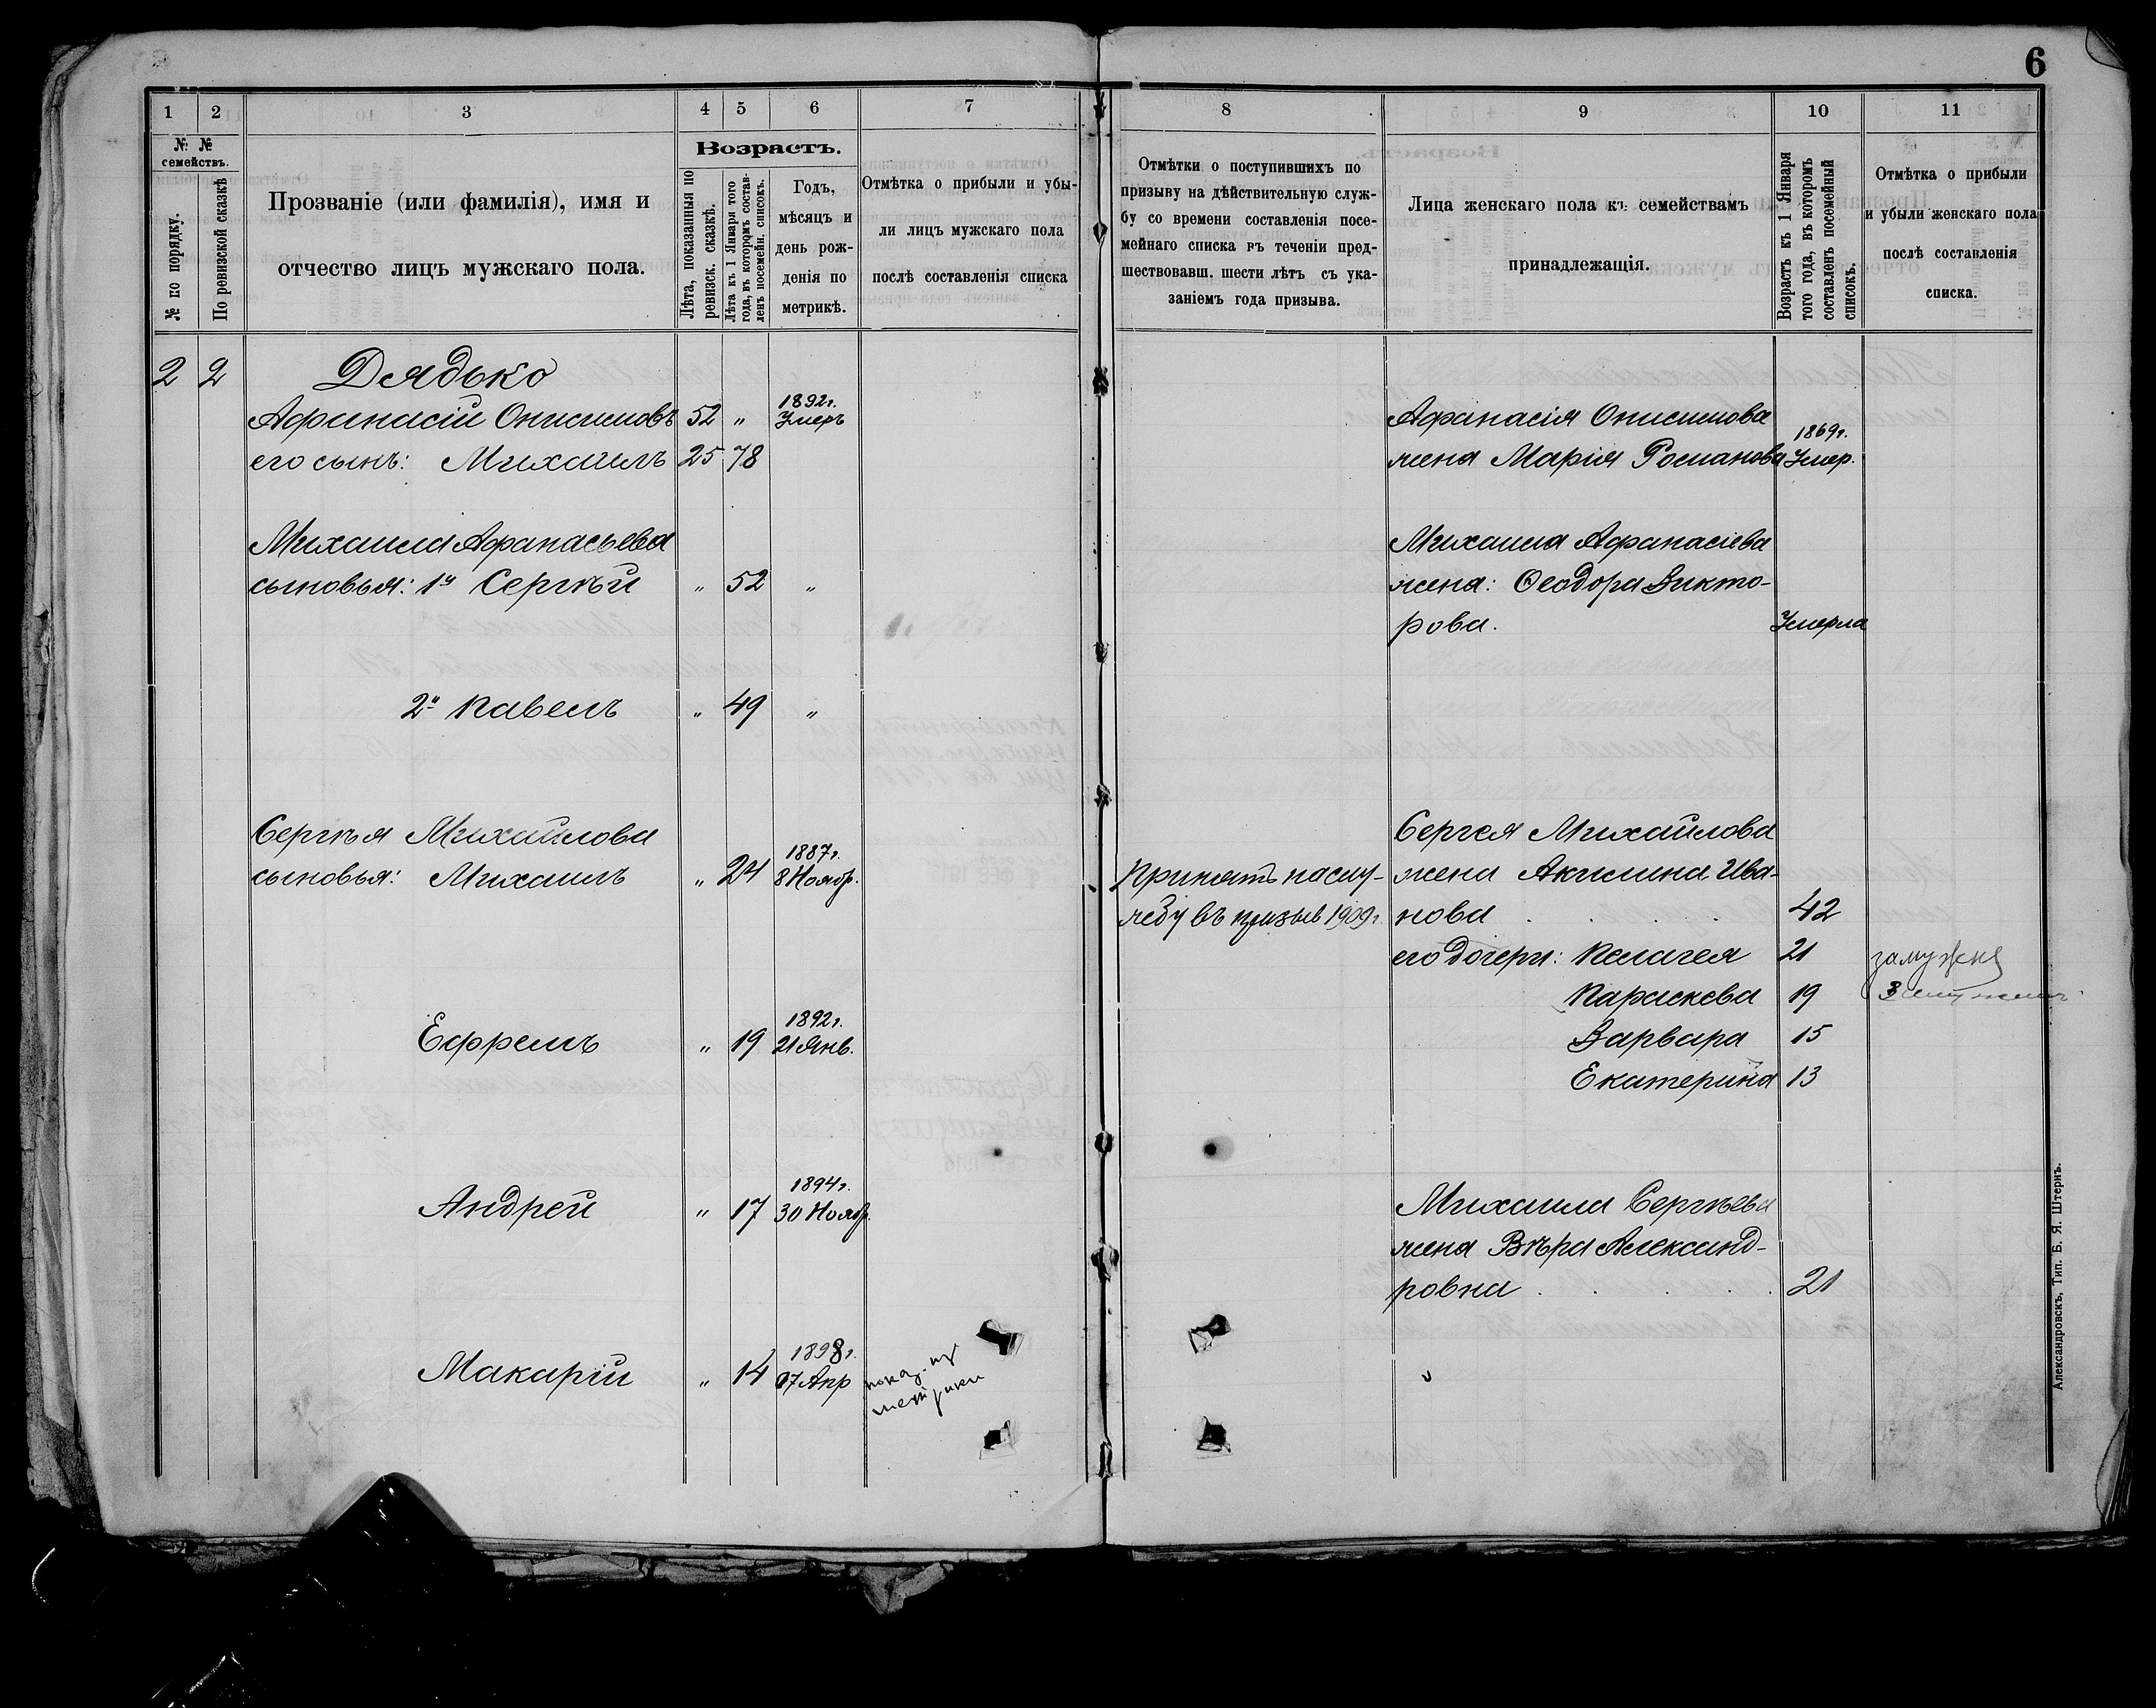 6
1 2 3 4 5 6 7
№ № семействъ.
№ по порядку.
По ревизской сказкѣ
Прозваніе (или фамилія), имя и
отчество лицъ мужскаго пола.
Возрастъ.
Лѣта, показанныя по
ревизск. сказкѣ.
Лѣта къ 1 Января того
года, въ которомъ состав-
ленъ посемейн. списокъ.
Годъ,
мѣсяцъ и
день рож-
денія по
метрикѣ.
Отмѣтка о прибыли и убы-
ли лицъ мужскаго пола
послѣ составленія списка
2 2 Дядько
Афанасій Онисимовъ 52 " 1892г. Умеръ
его сынъ: Михаилъ 25 78
Михаила Афанасьева
сыновья: 1й Сергѣй " 52 "
2й Павелъ " 49 "
Сергѣя Михайлова
сыновья: Михаилъ " 24 1887г. 8 Ноябр.
Ефремъ " 19 1892г. 21 Янв.
Андрей " 17 1894г. 30 Ноябр.
Макарій " 14 1898г. 07 Апр
показ. из
метрики
8 9 10 11
Отмѣтки о поступившихъ по
призыву на дѣйствительную служ-
бу со времени составленія посе-
мейнаго списка въ теченіи пред-
шествовавш. шести лѣтъ съ ука-
заніемъ года призыва.
Лица женскаго пола къ семействамъ
принадлежащія.
Возрастъ къ 1 Января
того года, въ которомъ
составленъ посемейный
списокъ.
Отмѣтка о прибыли
и убыли женскаго пола
послѣ составленія
списка.
Афанасія Онисимова
жена Марія Романова 1869г. Умер.
Михаила Афанасіева
жена: Ѳеодора Викто-
рова. Умерла
Сергея Михайлова
Принятъ на слу- жена Акилина Ива-
жбу въ призыв 1909г. нова . . . . 42
его дочери: Пелагея 21 замужня
Параскева 19 Замужем
Варвара 15
Екатерина 13
Михаила Сергѣева
жена Вѣра Александ-
ровна . . . . . 21
Александровскъ, Тип. Б. Я. Штернъ.